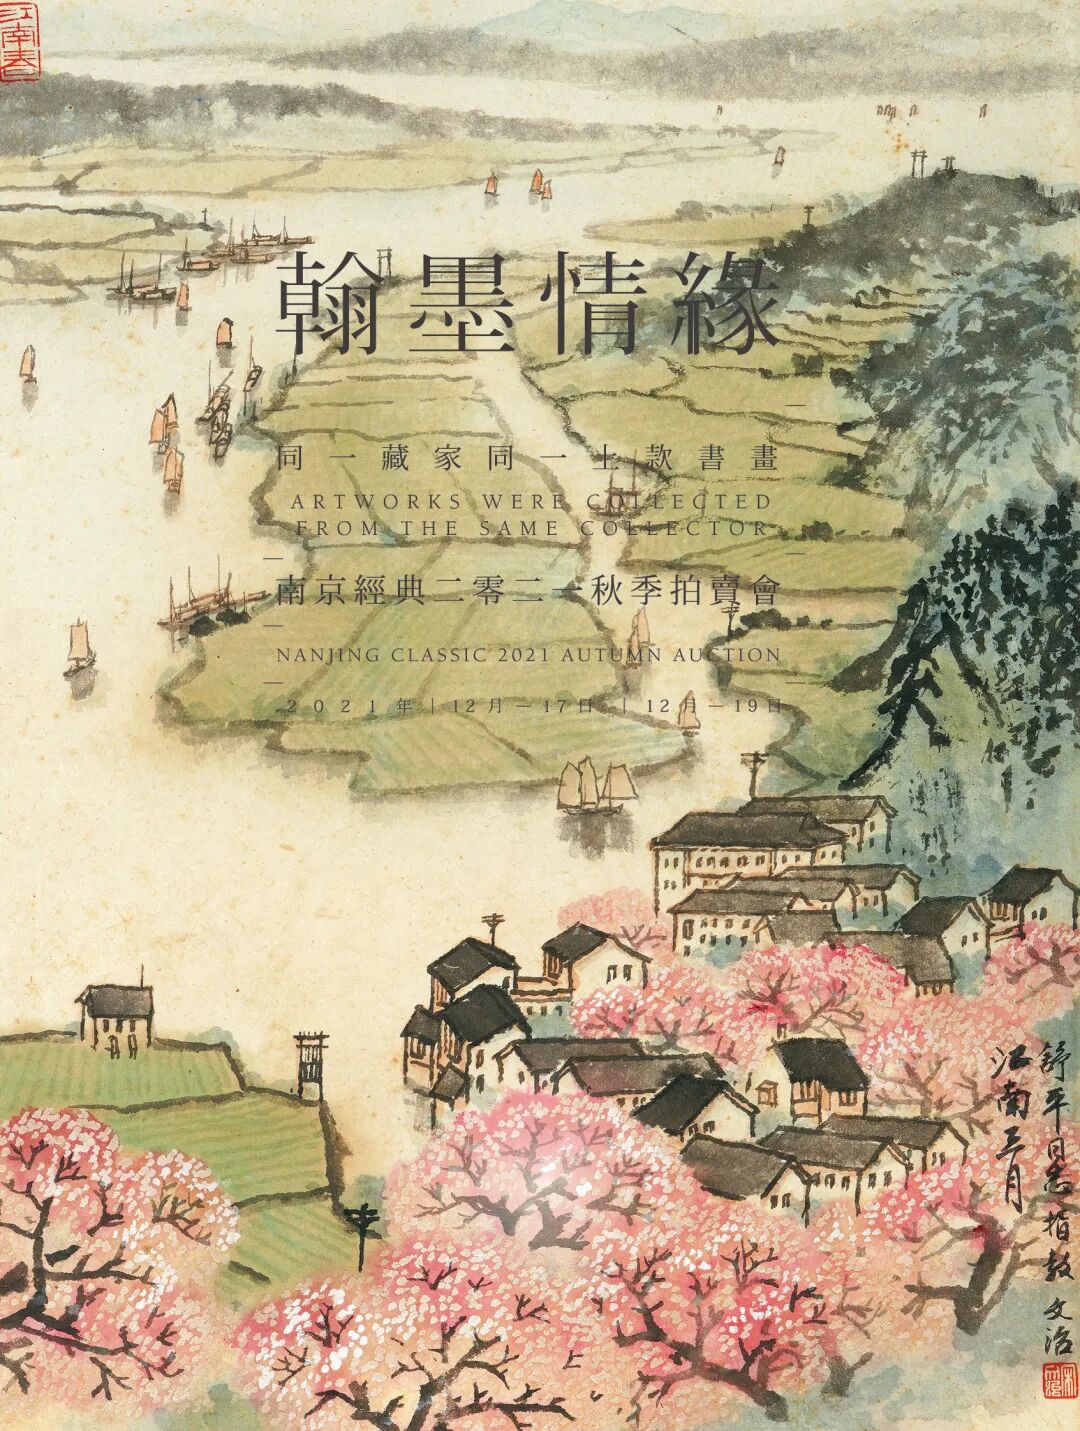 江南春
翰墨情緣
同一藏家同一上款書畫
ARTWORKS WERE COLLECTED
FROM THE SAME COLLECTOR
南京經典二零二一秋季拍賣會
NANJING CLASSIC 2021 AUTUMN AUCTION
2021年|12月—17日|12月—19日
江南三月
舒平同志指教 文治